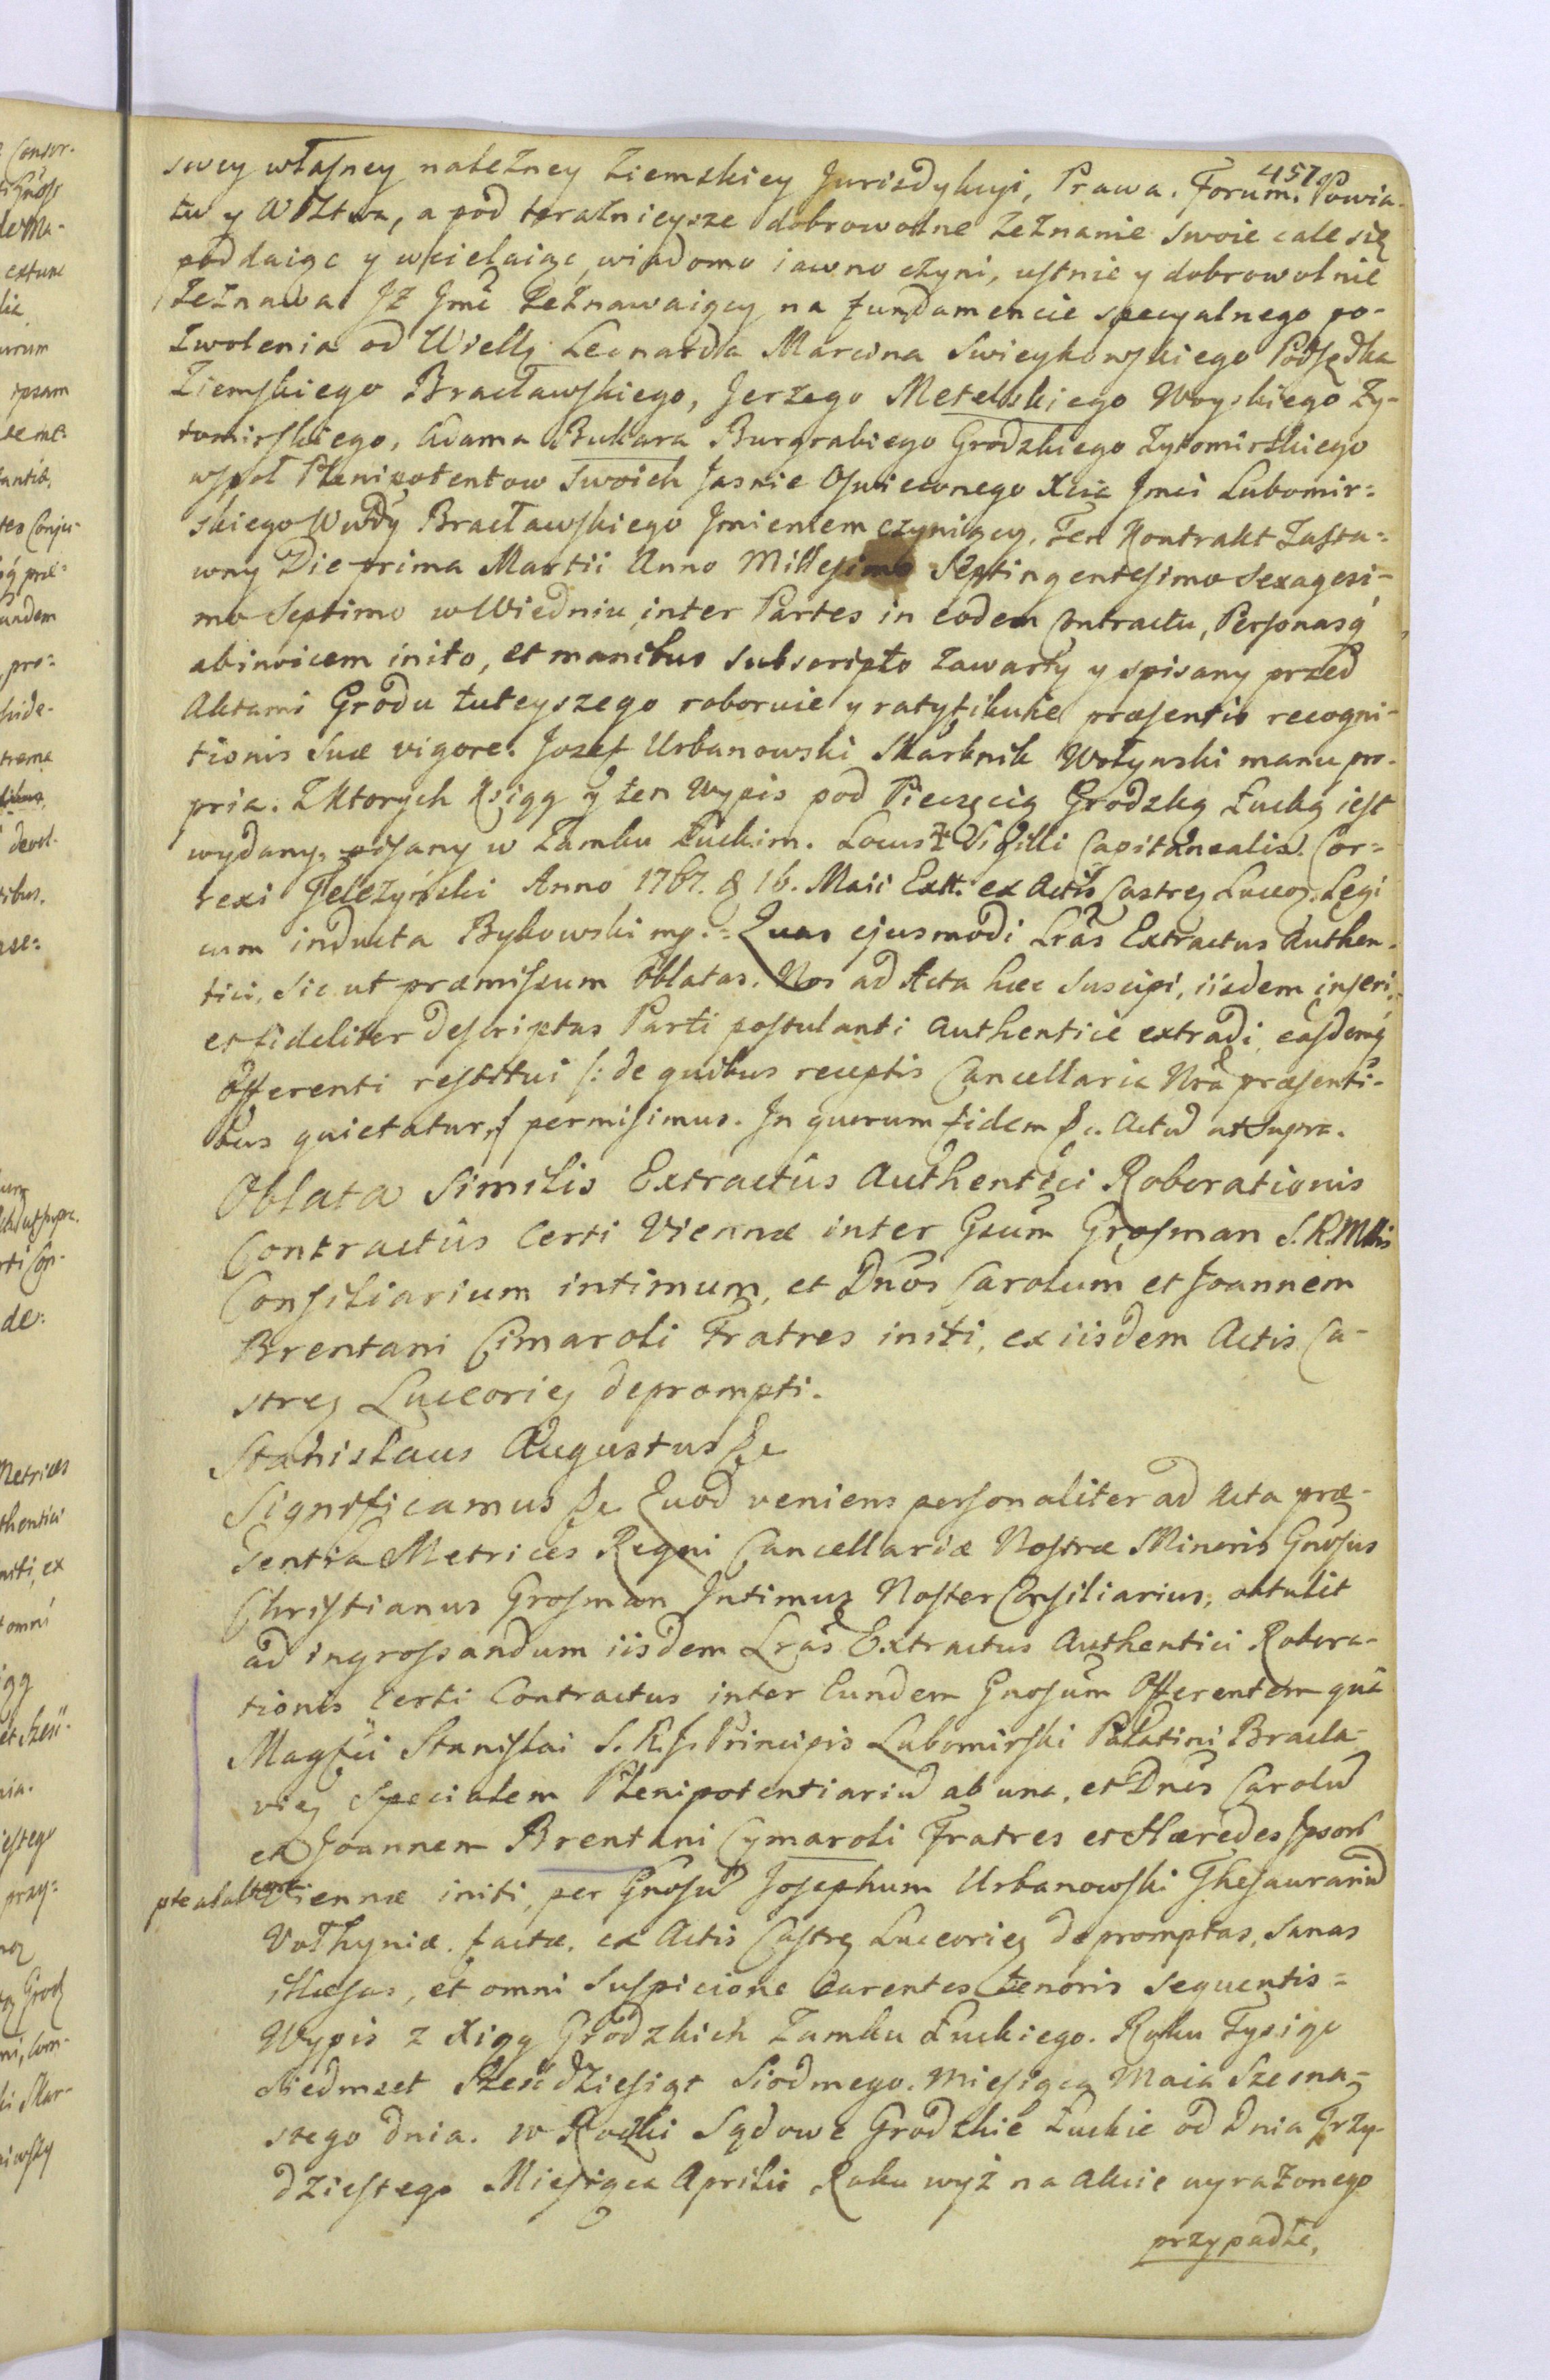 457
swey własney należney Ziemskiey Jurisdykcyi, Prawa. Forum. Powia-
tu y Wdztwa, a pod teraźnieysze dobrowolne zeznanie swoie cale się
poddaiąc y wcielaiąc, wiadomo iawno czyni, ustnie y dobrowolnie
zeznawa. Jż Jmć Zeznawaiący na fundamencie specyalnego po-
zwolenia od Wielbų Leonarda Marcina Swieykowskiego Podsędka
Ziemskiego Bracławskiego, Jerzego Metelskiego Woyskiego Zy-
tomirskiego, Adama Bukara Burgrabiego Grodzkiego Zytomirskiego
wspoł Plenipotentow Swoich Jasnie Oswieconego Xcia Jmci Lubomir=
skiego Wwdy Bracławskiego Jmieniem czyniący, Ten Kontrakt Zasta=
wny Die prima Martii Anno Millesimo Septingentesimo Sexagesi-
mo Septimo w Wiedniu inter Partes in eodem Contractu, Personasq́
abinvicem inito, et manibus subscripto zawarty y spisany przed
Aktami Grodu tuteyszego roboruie y ratyfikuie præsentis recogni-
tionis suæ vigore. Jozef Urbanowski Skarbnik Wołynski manu pro-
pria. Z Ktorych Xsiąg y ten Wypis pod Pieczęcią Grodzką Łucką iest
wydany, pisany w Zamku Łuckim. Locus ✠ Sigilli Capitanealis. Cor=
rexi Jełeżyński Anno 1767. d 16. Maii Extt. ex Actis Castreņ Luceoŗ. Legi
cum inducta Bykowski mp.= Quas ejusmodi Lrãs Extractus Authen-
tici, sic ut præmissum oblatas. Nos ad Acta hæc suscipi, iisdem inseri,
et fideliter descriptas Parti postulanti authentice extradi, easdemq́
Offerenti restitui /: de quibus receptis Cancellaria Nrã præsenti-
bus quietatur :/ permisimus. In quorum fidem &c. Actũ ut Supra.
Oblata Similis Extractus Authentici Roborationis
Contractus Certi Viennæ inter Gsũm Grosman S.R.Mttis
Consiliarium intimum, et Dnõs Carolum et Joannem
Brentani Cimaroli Fratres initi, ex iisdem Actis Ca-
streņ Luceorieņ deprompti.
Stanislaus Augustus &c
Significamus &c Quod veniens personaliter ad Acta præ-
sentia Metrices Regni Cancellariæ Nostræ Minoris Gnosus
Christianus Grosman Intimus Noster Consiliarius, obtulit
ad ingrossandum iisdem Lrãs Extractus Authentici Robora-
tionis Certi Contractus inter Eundem Gnosũm Offerentem quà
Magfici Stanislai S.R.J. Principis Lubomirski Palatini Bracla-
vieņ Specialem Plenipotentiariũ ab una, et Dnõs Carolũ
et Joannem Brentani Cymaroli Fratres et Hæredes Ipsorũ
pte ab altera
Viennæ initi, per Gnosũ Josephum Urbanowski Thesaurariũ
Volhyniæ. factæ. ex Actis Castreņ Luceorieņ depromptas, sanas
illæsas, et omni suspicione carentes tenoris sequentis=
Wypis z Xiąg Grodzkich Zamku Łuckiego. Roku Tysiąc
Siedmset Szescdziesiąt Siodmego. Miesiąca Maia Szesna-
stego dnia. w Roczki Sądowe Grodzkie Łuckie od Dnia Trzy-
dziestego Miesiąca Aprilis Roku wyż na akcie wyrażonego
przypadłe,